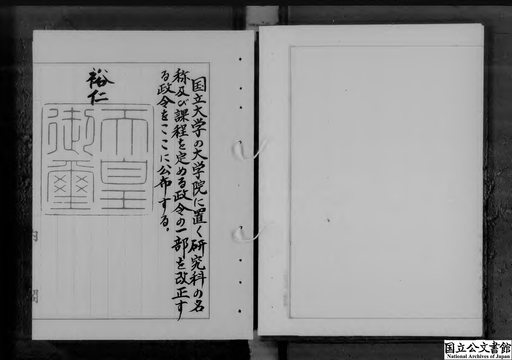 国立大学の大学院に置く研究科の名
称及び課程を定める政令の一部を改正す
る政令をここに公布する。
裕仁
天皇
御璽
内
閣
国立公文書館
National Archives of Japan